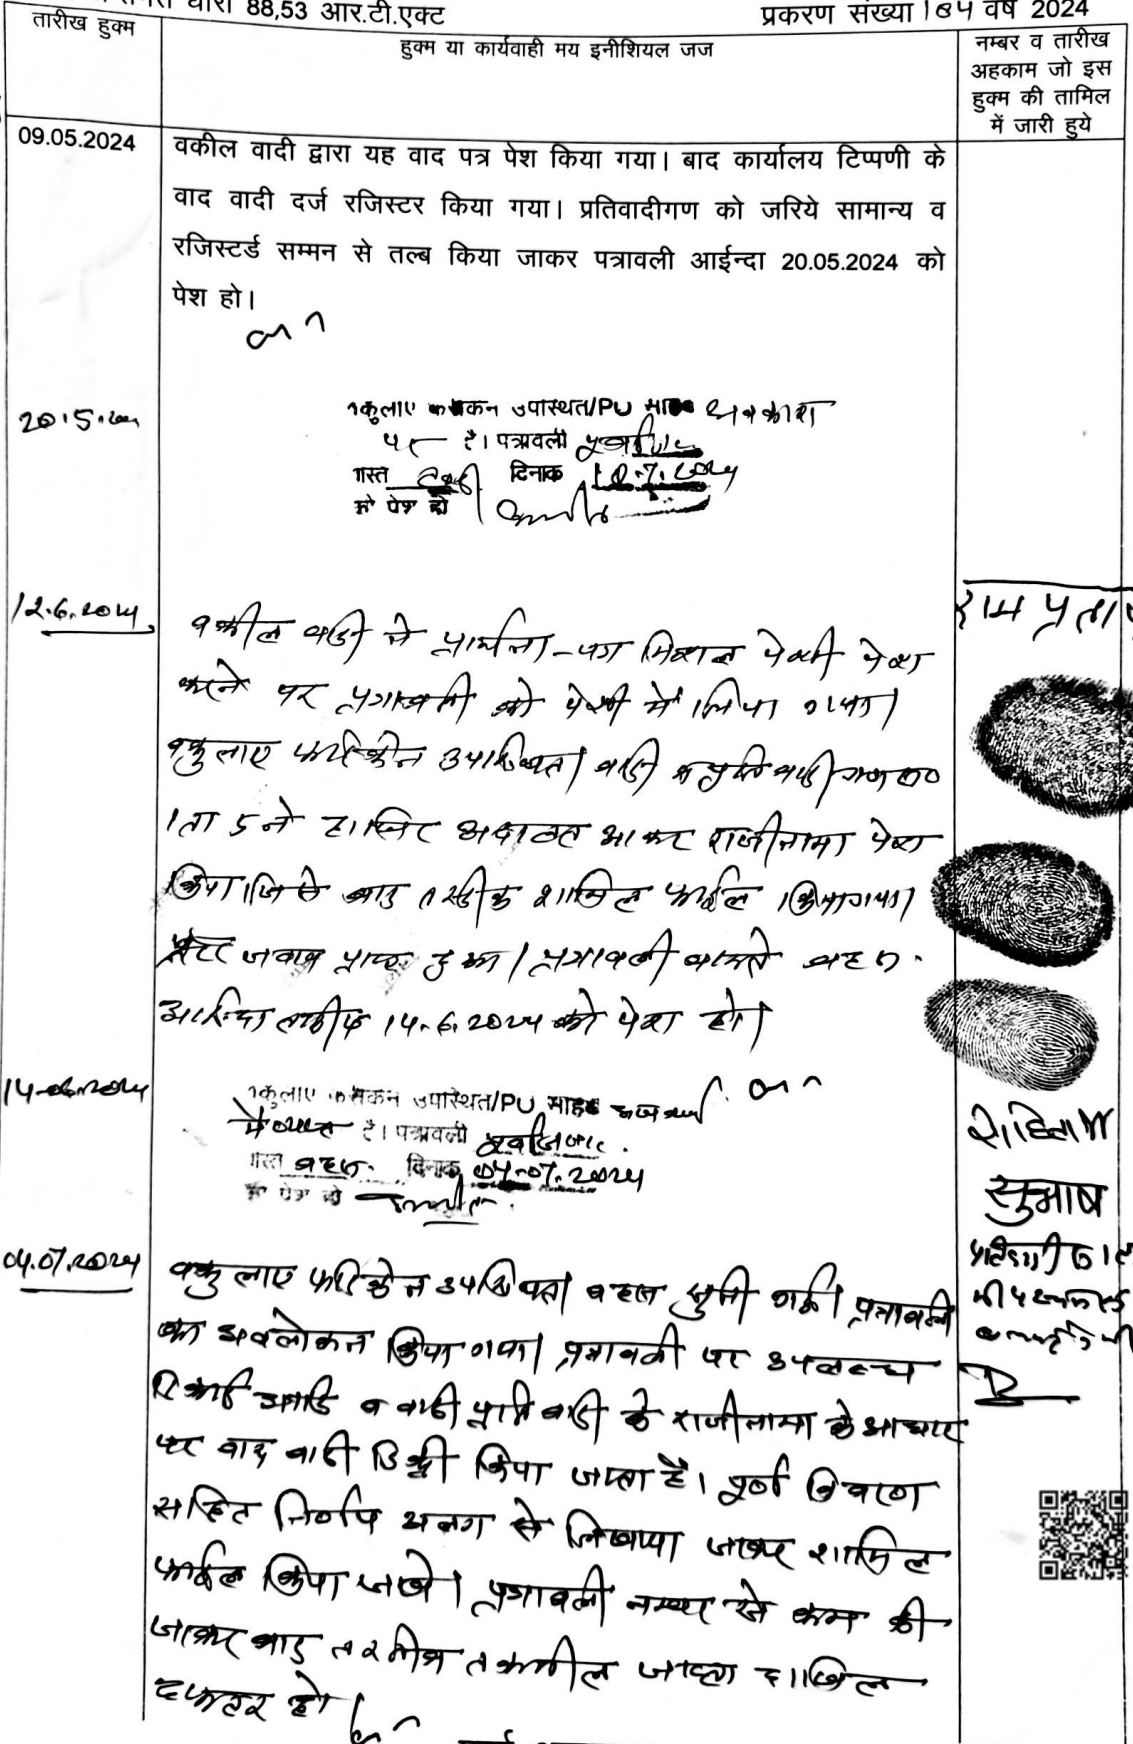 धारा 88,53 आर.टी.एक्ट
प्रकरण संख्या 184 वर्ष 2024
तारीख हुक्म
हुक्म या कार्यवाही मय इनीशियल जज
नम्बर व तारीख
अहकाम जो इस
हुक्म की तामिल
में जारी हुये
09.05.2024
वकील वादी द्वारा यह वाद पत्र पेश किया गया। बाद कार्यालय टिप्पणी के
वाद वादी दर्ज रजिस्टर किया गया। प्रतिवादीगण को जरिये सामान्य व
रजिस्टर्ड सम्मन से तल्ब किया जाकर पत्रावली आईन्दा 20.05.2024 को
पेश हो।
20.5.
उपास्थत/PU अवकाश
पर है। पत्रावली
दिनांक
को पेश हो
12.6.2024
वकील वादी ने प्रार्थना-पत्र मिशल पेशी पेश
करने पर पत्रावली को पेशी में लिया गया।
वकुलाए फरिकेन उपस्थित। वादी व प्रतिवादीगण
1 ता 5 ने हाजिर अदालत आकर राजीनामा पेश
किया। जिसे बाद तस्दीक शामिल फाईल किया गया।
जवाब प्राप्त हुआ। पत्रावली वास्ते बहस
आईन्दा तारीख 14.6.2024 को पेश हो।
राम प्रताप
14-06-2024
उपास्थित/PU
है। पत्रावली
बहस दिनांक 04-07-2024
को पेश हो
रोहिताश
सुभाष
04.07.2024
वकुलाए फरिकेन उपस्थित। बहस सुनी गई। पत्रावली
का अवलोकन किया गया। पत्रावली पर उपलब्ध
रिकार्ड आदि व वादी प्रतिवादी के राजीनामा के आधार
पर वाद वादी डिक्री किया जाता है। पूर्ण विवरण
सहित निर्णय अलग से लिखाया जाकर शामिल
फाईल किया जावे। पत्रावली नम्बर से कम की
जाकर बाद तरमीम तकमील जाब्ता दाखिल
दफ्तर हो।